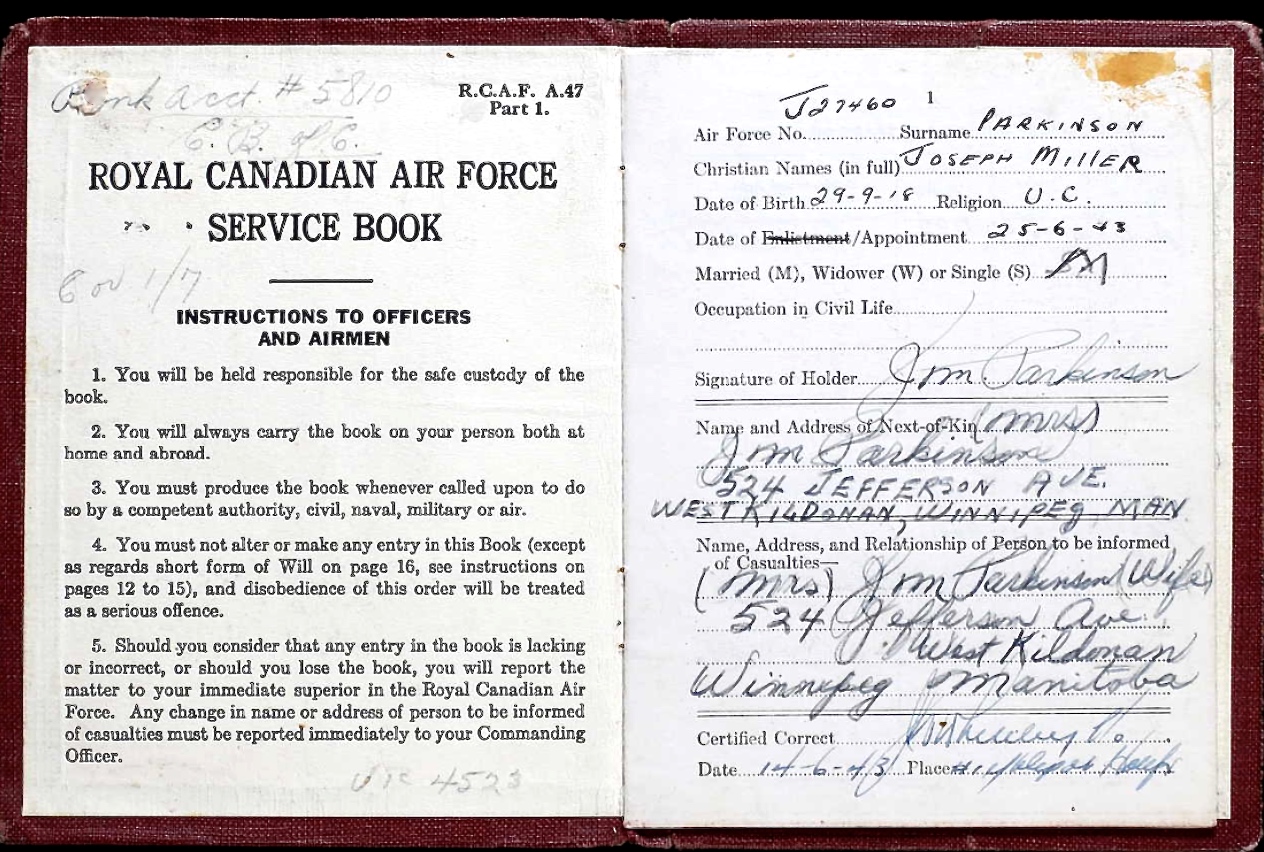 Bank acct. # 5810
C. B. of C.
R.C.A.F. A.47
Part 1.
ROYAL CANADIAN AIR FORCE
SERVICE BOOK
INSTRUCTIONS TO OFFICERS
AND AIRMEN
1. You will be held responsible for the safe custody of the
book.
2. You will always carry the book on your person both at
home and abroad.
3. You must produce the book whenever called upon to do
so by a competent authority, civil, naval, military or air.
4. You must not alter or make any entry in this Book (except
as regards short form of Will on page 16, see instructions on
pages 12 to 15), and disobedience of this order will be treated
as a serious offence.
5. Should you consider that any entry in the book is lacking
or incorrect, or should you lose the book, you will report the
matter to your immediate superior in the Royal Canadian Air
Force. Any change in name or address of person to be informed
of casualties must be reported immediately to your Commanding
Officer.
4523
1
Air Force No. J27460 Surname PARKINSON
Christian Names (in full) JOSEPH MILLER
Date of Birth 29-9-18 Religion U.C.
Date of Enlistment/Appointment 25-6-43
Married (M), Widower (W) or Single (S) M
Occupation in Civil Life
Signature of Holder Jim Parkinson
Name and Address of Next-of-Kin (Mrs)
Jim Parkinson
524 JEFFERSON AVE.
WEST KILDONAN, WINNIPEG MAN
Name, Address, and Relationship of Person to be informed
of Casualties—
(Mrs) Jim Parkinson (Wife)
524 Jefferson Ave.
West Kildonan
Winnipeg Manitoba
Certified Correct
Date 14-6-43 Place